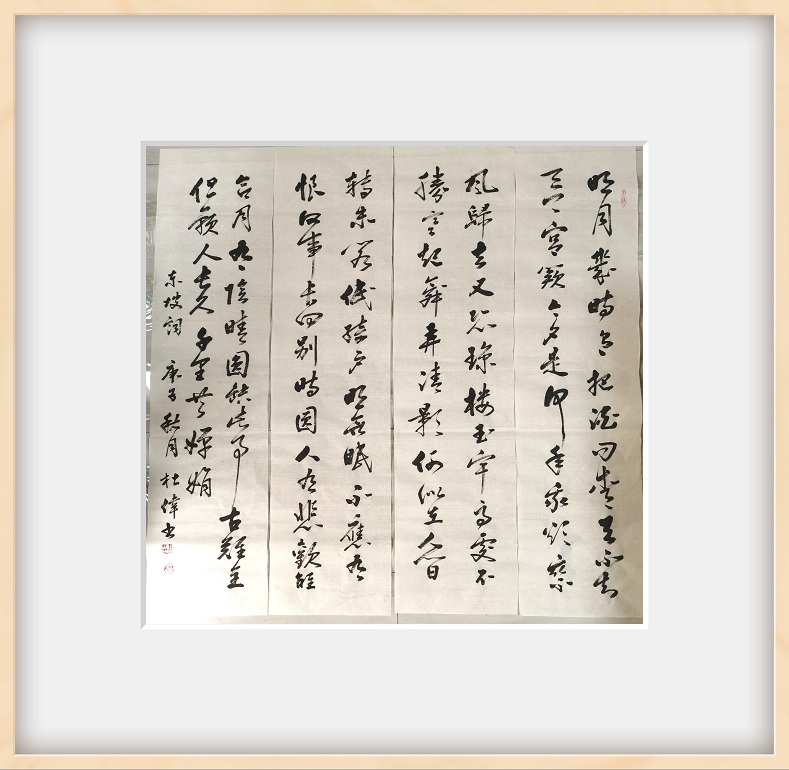 明月幾時有把酒问青天不知
天上宫闕今夕是何年我欲乘
风歸去又恐琼楼玉宇高處不
勝寒起舞弄清影何似在人间
轉朱阁低绮户照無眠不應有
恨何事长向别時圆人有悲歡離
合月有陰晴圆缺此事古難全
但願人长久千里共嬋娟
东坡词 庚子秋月 杜偉书